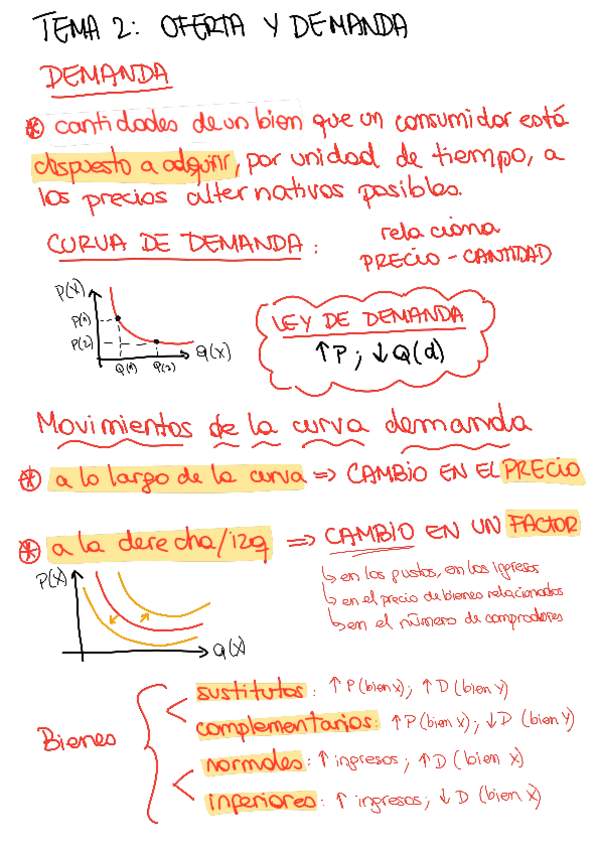 TEMA 2: OFERTA Y DEMANDA
DEMANDA
* cantidades de un bien que un consumidor está
dispuesto a adquirir, por unidad de tiempo, a
los precios alternativos posibles.
CURVA DE DEMANDA: relaciona
PRECIO - CANTIDAD
P(X)
P(1)
P(2)
Q(1) Q(2) Q(X)
LEY DE DEMANDA
↑P; ↓Q(d)
Movimientos de la curva demanda
* a lo largo de la curva => CAMBIO EN EL PRECIO
* a la derecha/izq => CAMBIO EN UN FACTOR
↳ en los gustos, en los ingresos
↳ en el precio de bienes relacionados
↳ en el número de compradores
P(X)
Q(X)
Bienes
sustitutos: ↑P(bien x); ↑D(bien y)
complementarios: ↑P(bien x); ↓D (bien y)
normales: ↑ingresos; ↑D (bien x)
inferiores: ↑ ingresos; ↓ D (bien x)